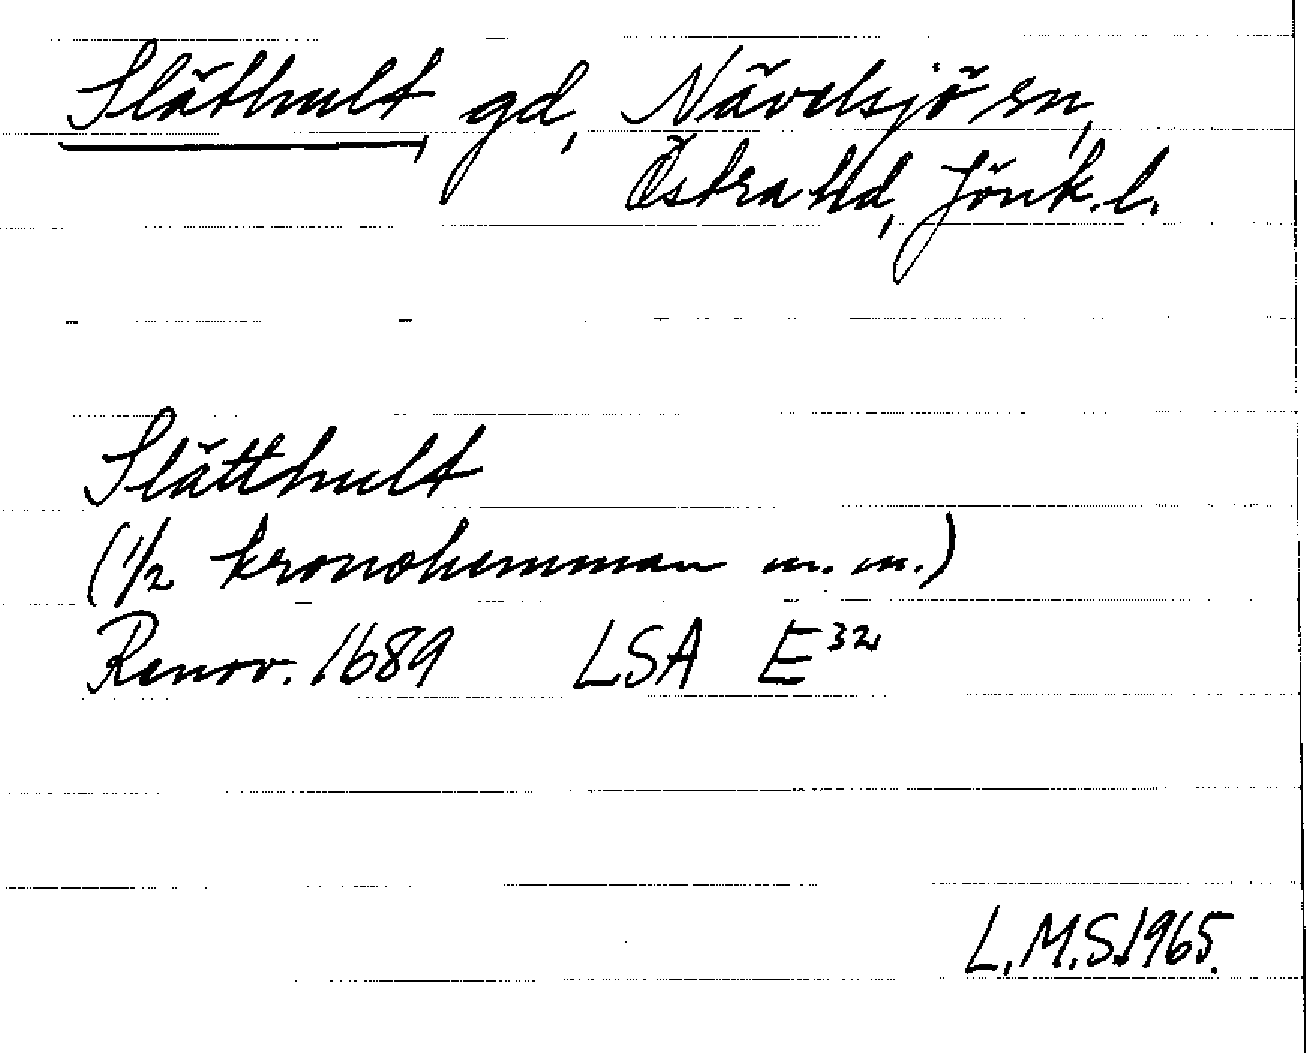 Släthult, gd, Nävelsjö sn,
Östra hd, Jönk. l.
Slätthult
(1/2 kronohemman m. m.)
Renov. 1689 LSA E³²
L.M.S. 1965.